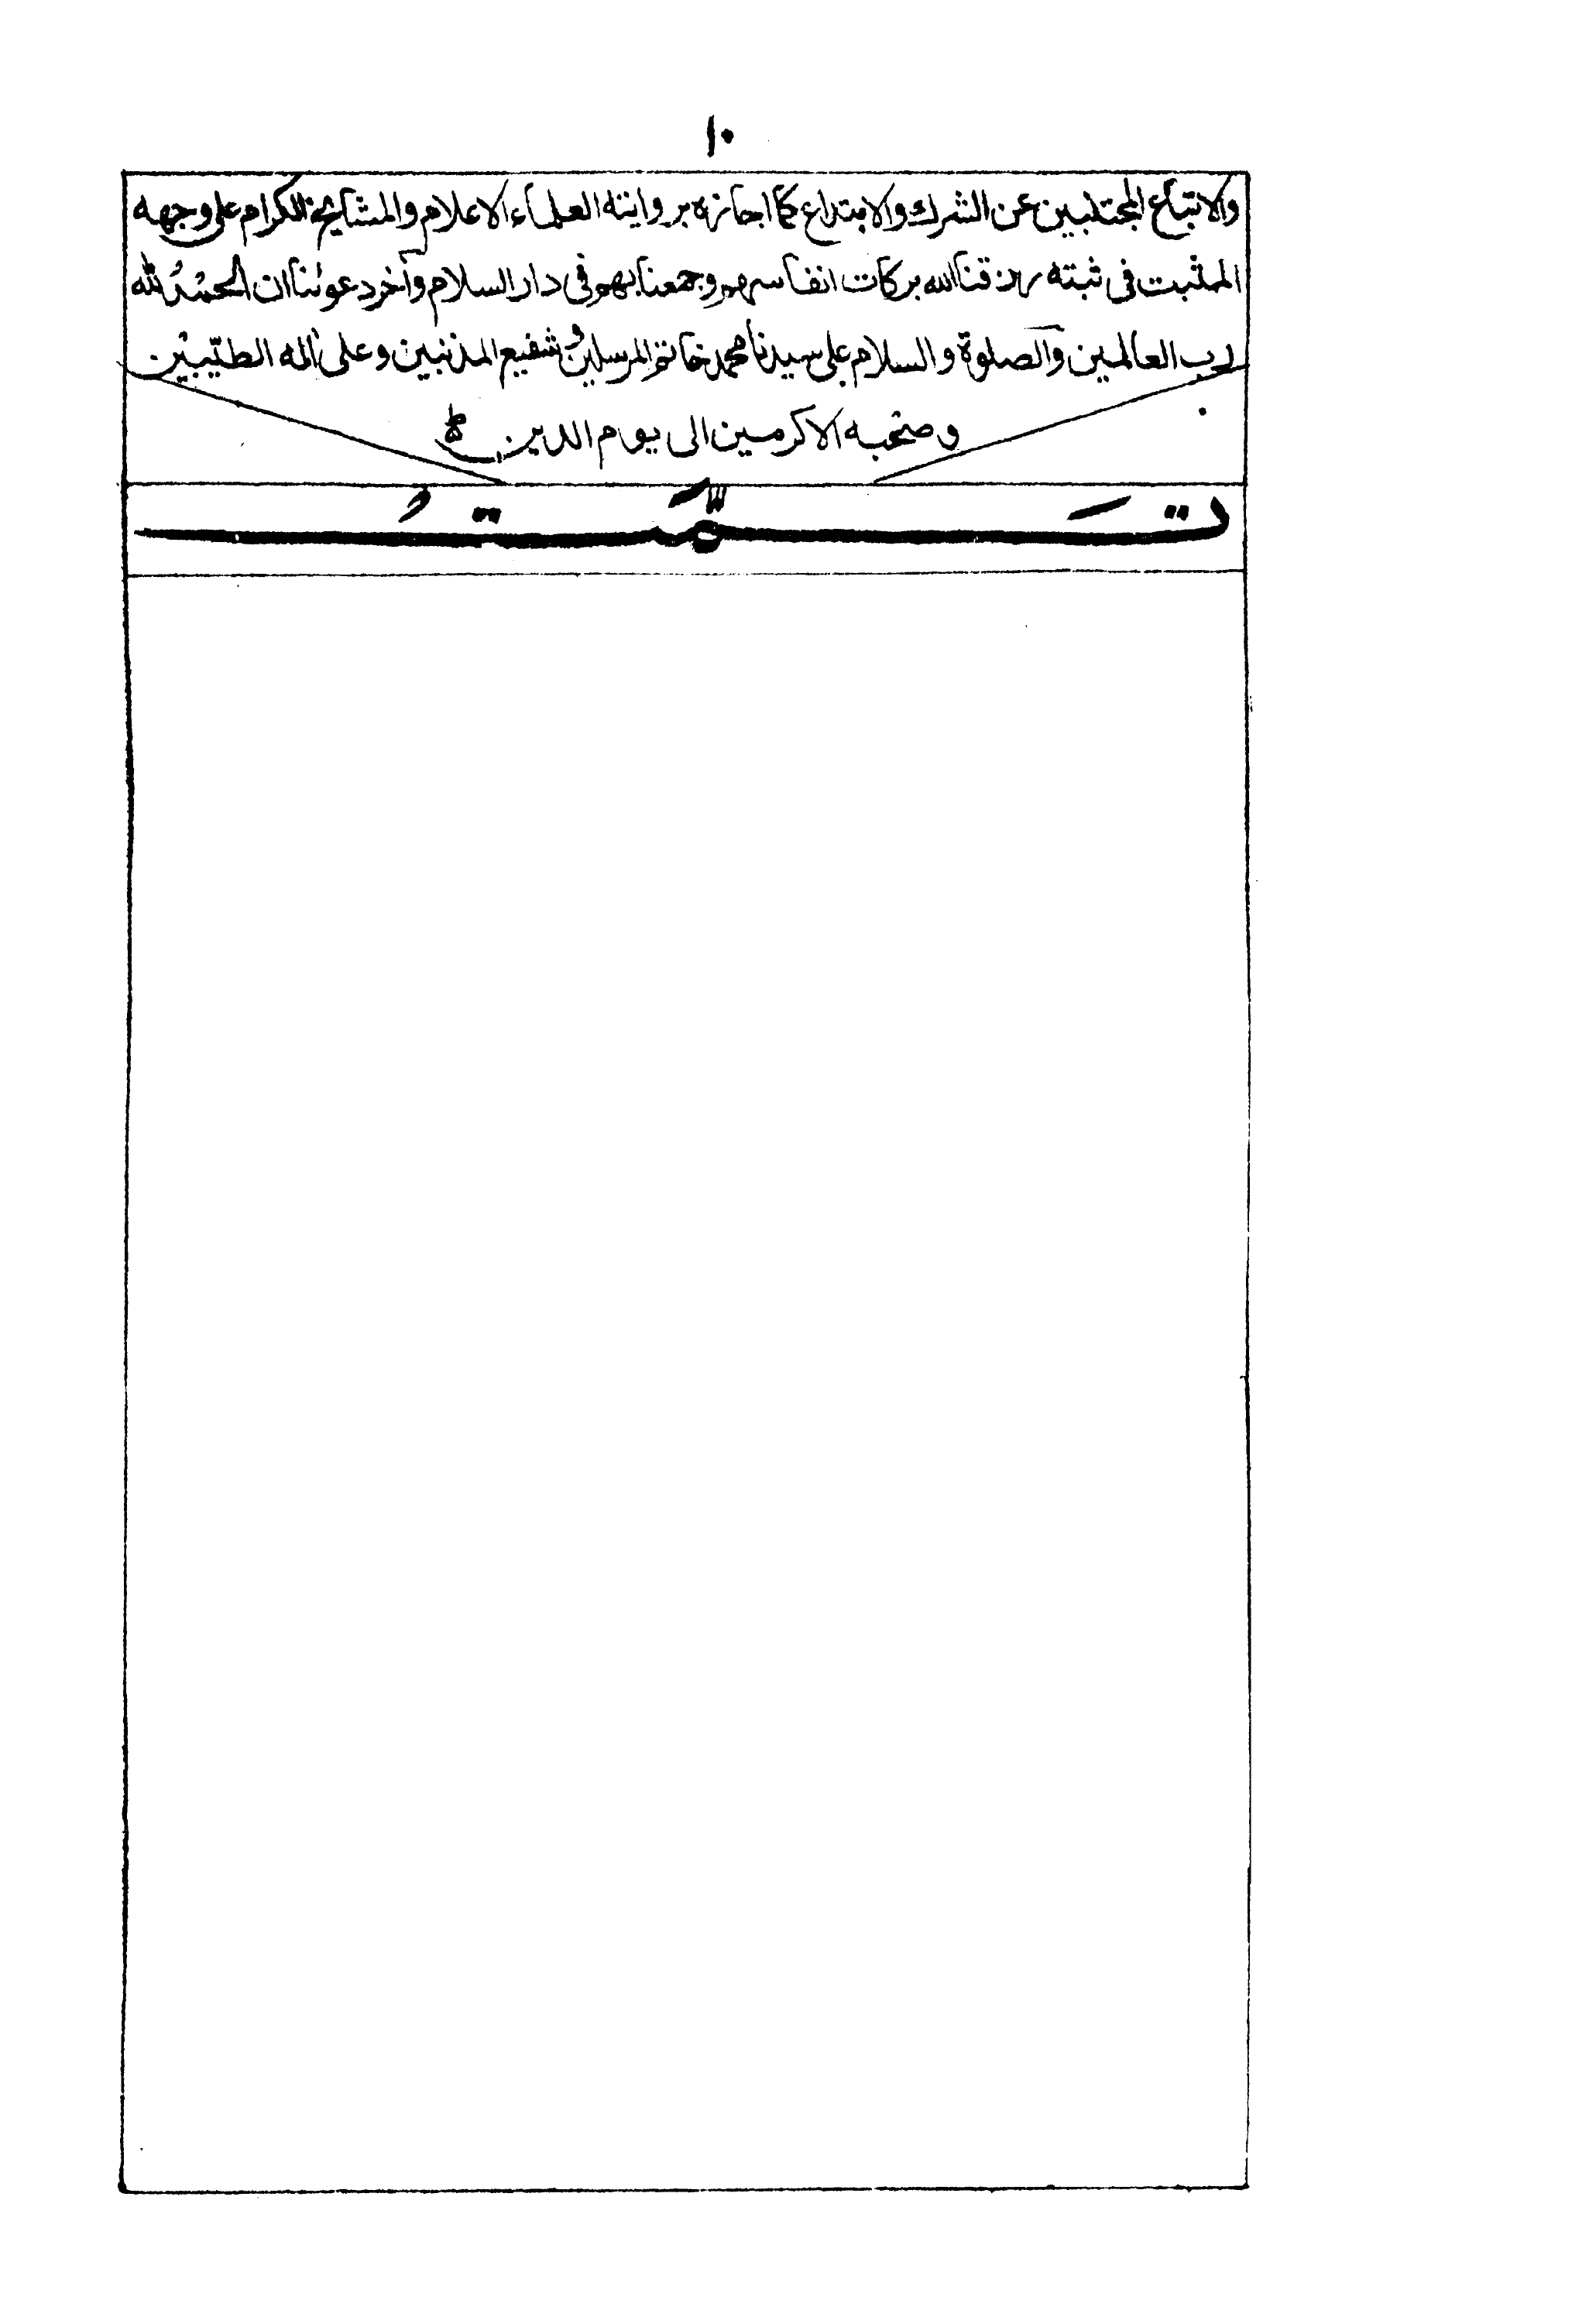 ١٠
والاتباع المجتنبين عن الشرك والابتداع كما اجازه بروايته العلماء الاعلام والمشايخ الكرام على وجهه
المثبت فى ثبته رزقنا الله بركات انفاسهم وجمعنا بهم فى دار السلام وآخر دعوٰنا ان الحمد لله
رب العالمين والصلوة والسلام على سيدنا محمد خاتم المرسلين وشفيع المذنبين وعلى اٰله الطيّبين
وصحبه الاكرمين الى يوم الدين
تَمَّتُ